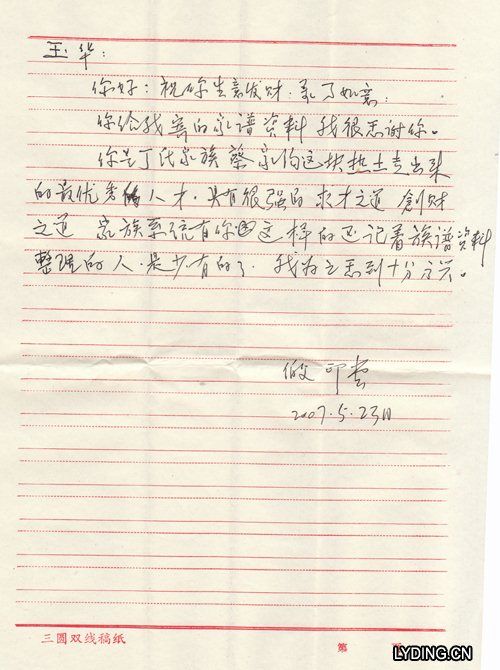 玉华:
你好:祝你生意发财.万事如意.
你给我寄的家谱资料 我很感谢你。
你是丁氏家族 蔡家沟这块热土走出来
的最优秀的人才.具有很强的求才之道 创财
之道 家族系统有你这样的还记着族谱资料
整理的人.是少有的了. 我为之感到十分高兴。
印堂
2007.5.23日
三圆双线稿纸
第 页
LYDING.CN